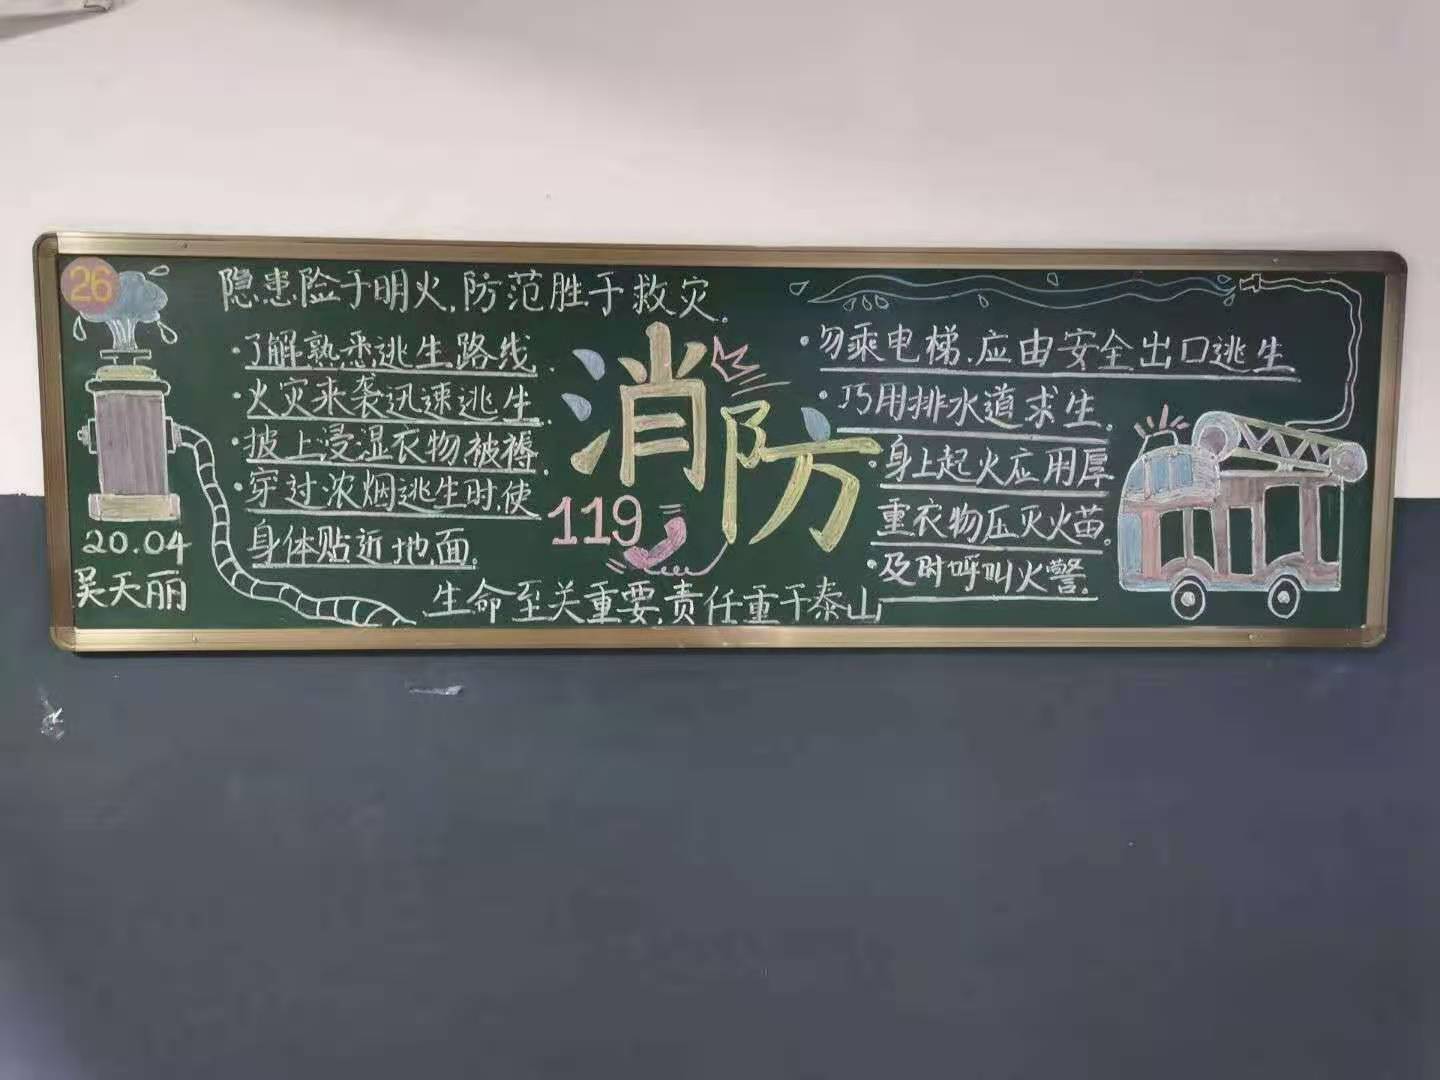 26
隐患险于明火,防范胜于救灾.
·了解熟悉逃生路线.
·火灾来袭迅速逃生.
·披上浸湿衣物被褥.
·穿过浓烟逃生时,使
身体贴近地面.
消防
119
·勿乘电梯,应由安全出口逃生
·巧用排水道求生.
·身上起火应用厚
重衣物压灭火苗.
·及时呼叫火警.
生命至关重要,责任重于泰山
20.04
吴天丽